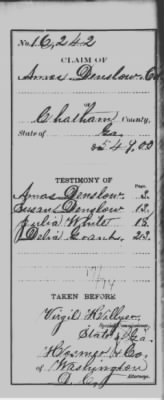 No. 16,242
CLAIM OF
Amos Denslow. Col
Chatham County,
State of Ga.
$549.00
TESTIMONY OF
Page.
Amos Denslow. 2.
Susan Denslow 12.
Julia White 15.
Delia Grant. 23.
TAKEN BEFORE
Virgil Hillyer
State of Ga.
& Co.
of Washington
D. C.
Attorney.